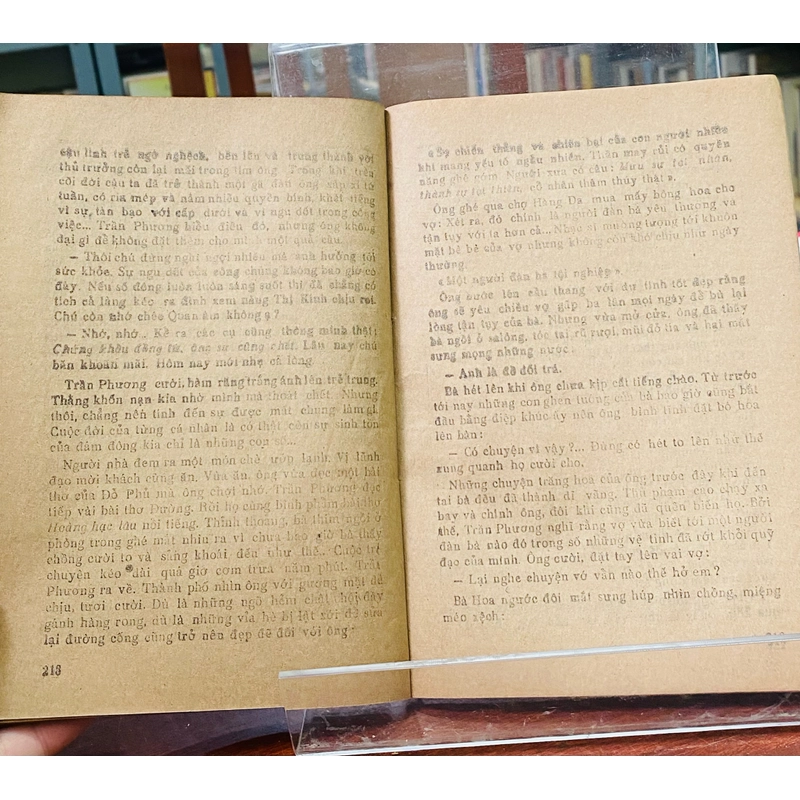 cậu lính trẻ ngờ nghệch, bẽn lẽn và trung thành với
thủ trưởng còn lại mãi trong tim ông. Trong khi, trên
cõi đời cậu ta đã trở thành một gã đầu ông xấp xỉ tứ
tuần, có ria mép và nắm nhiều quyền bính, khát tiếng
vì sự tàn bạo với cấp dưới và vì ngu dốt trong công
việc... Trần Phương hiểu điều đó, nhưng ông không
dại gì để không đặt thêm cho mình một quả cầu.
— Thôi chú đừng nghĩ ngợi nhiều mà ảnh hưởng tới
sức khỏe. Sự ngu dốt của công chúng không bao giờ có
đáy. Nếu số đông luôn luôn sáng suốt thì đã chẳng có
tích cả làng kéo ra đình xem nàng Thị Kính chịu roi.
Chú còn nhớ chèo Quan âm không ạ?
— Nhớ, nhớ.. Kể ra các cụ cũng thông minh thật:
Chúng khẩu đồng từ, ông sư cũng chết. Lâu nay chú
băn khoăn mãi. Hôm nay mới nhẹ cả lòng.
Trần Phương cười, hàm răng trắng ánh lên trẻ trung.
Thằng khốn nạn kia nhờ mình mà thoát chết. Nhưng
thôi, chẳng nên tính đến sự được mất chung làm gì.
Cuộc đời của từng cá nhân là có thật, còn sự sinh tồn
của đám đông kia chỉ là những con số...
Người nhà đem ra một món chè ướp lạnh. Vị lãnh
đạo mời khách cùng ăn. Vừa ăn, ông vừa đọc một bài
thơ của Đỗ Phủ mà ông chợt nhớ. Trần Phương đọc
tiếp vài bài thơ Đường. Rồi họ cùng bình phẩm bài thơ
Hoàng hạc lâu nổi tiếng. Thỉnh thoảng, bà thím ngồi ở
phòng trong ghé mắt nhìn ra vì chưa bao giờ bà thấy
chồng cười to và sảng khoái đến như thế. Cuộc trò
chuyện kéo dài quá giờ cơm trưa năm phút. Trần
Phương ra về. Thành phố nhìn ông với gương mặt dễ
chịu, tươi cười. Dù là những ngõ hẻm chật chội đầy
gánh hàng rong, dù là những vỉa hè bị lật xới để sửa
lại đường cống cũng trở nên đẹp đẽ đối với ông:
213
« Sự chiến thắng và chiến bại của con người nhiều
khi mang yếu tố ngẫu nhiên. Thần may rủi có quyền
năng ghê gớm. Người xưa có câu: Mưu sự tại nhân,
thành sự tại thiên, cổ nhân thâm thúy thật ».
Ông ghé qua chợ Hàng Da mua mấy bông hoa cho
vợ: Xét ra, đó chính là người đàn bà yêu thương và
tận tụy với ta hơn cả... Nhạc sĩ mường tượng tới khuôn
mặt bè bè của vợ nhưng không còn khó chịu như ngày
thường.
« Một người đàn bà tội nghiệp ».
Ông bước lên cầu thang với dự tính tốt đẹp rằng
ông sẽ yêu chiều vợ gấp ba lần mọi ngày để bù lại
lòng tận tụy của bà. Nhưng vừa mở cửa, ông đã thấy
bà ngồi ở salông, tóc tai rũ rượi, mũi đỏ lía và hai mắt
sưng mọng những nước.
— Anh là đồ dối trá.
Bà hét lên khi ông chưa kịp cất tiếng chào. Từ trước
tới nay những cơn ghen tuông của bà bao giờ cũng bắt
đầu bằng điệp khúc ấy nên ông bình tĩnh đặt bó hoa
lên bàn:
— Có chuyện gì vậy?... Đừng có hét to lên như thế
xung quanh họ cười cho.
Những chuyện trăng hoa của ông trước đây khi đến
tai bà đều đã thành dĩ vãng. Thủ phạm cao chạy xa
bay và chính ông, đôi khi cũng đã quên biến họ. Bởi
thế, Trần Phương nghĩ rằng vợ vừa biết tới một người
đàn bà nào đó trong số những vệ tinh đã rớt khỏi quỹ
đạo của mình. Ông cười, đặt tay lên vai vợ:
— Lại nghe chuyện vớ vẩn nào thế hở em?
Bà Hoa ngước đôi mắt sưng húp nhìn chồng, miệng
méo xệch: